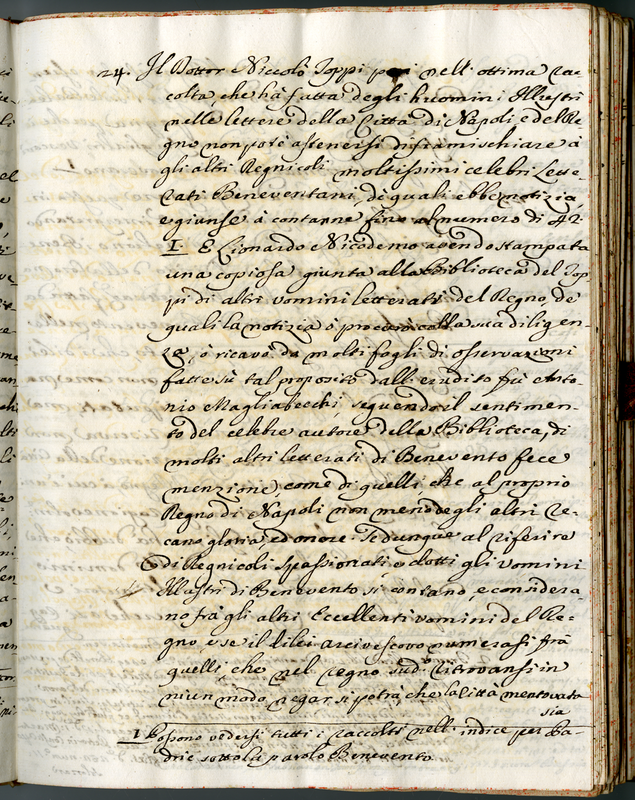 24. Il Dottor Niccolò Toppi poi nell'ottima rac-
colta, che hà fatta degli huomini Illustri
nelle lettere della Città di Napoli, e del Re
gno non potè astenersi di framischiare à
gli altri Regnicoli moltissimi celebri Lette
rati Beneventani, de quali ebbe notizia,
e giunse à contanne fino al numero di 42.
I. E Lionardo Nicodemo avendo stampata
una copiosa giunta alla Biblioteca del Top-
pi di altri uomini letterati del Regno, de
quali la notizia ò procurò colla sua diligen-
za, ò ricavò da molti fogli di osservazioni
fatte sù tal proposito dall'erudito fù Anto-
nio Magliabechi, seguendo il sentimen-
to del celebre autore della Biblioteca, di
molti altri letterati di Benevento fece
menzione, come di quelli che al proprio
Regno di Napoli non meno degli altri re-
cano gloria ed onore. Se dunque al riferire
di Regnicoli spassionati, e dotti gli uomini
Illustri di Benevento si contano, e considera-
no frà gli altri Eccellenti uomini del Re=
gno, e se il di lei arcivescovo numerasi frà
quelli, che nel regno sud.o ritrovansi in
niun modo negar si potrà, che la Città mentovata
sia
I Possono vedersi tutti i raccolti nell'indice per Pa-
drie sotto la parola Benevento